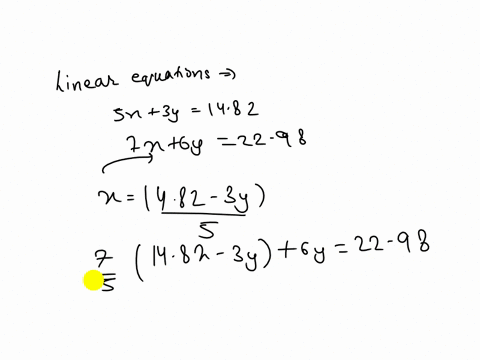 Linear equations →
5x + 3y = 14.82
7x + 6y = 22.98
x = (14.82 - 3y)
5
7/5 (14.82 - 3y) + 6y = 22.98